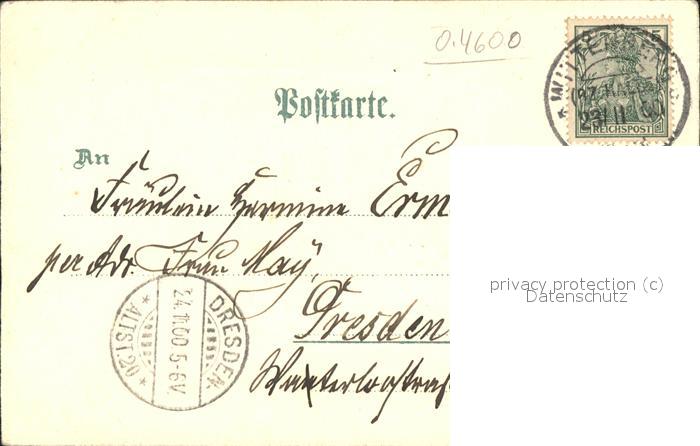 0.4600
5
WITTENBERG
(BZ. HALLE)
23/11 00
REICHSPOST
Postkarte.
An
Fräulein Hermine Erm
per Adr. Frau Maÿ,
Dresden
Waterloostraß
DRESDEN
24.11.00 5-6V.
* ALTST.20 *
privacy protection (c)
Datenschutz